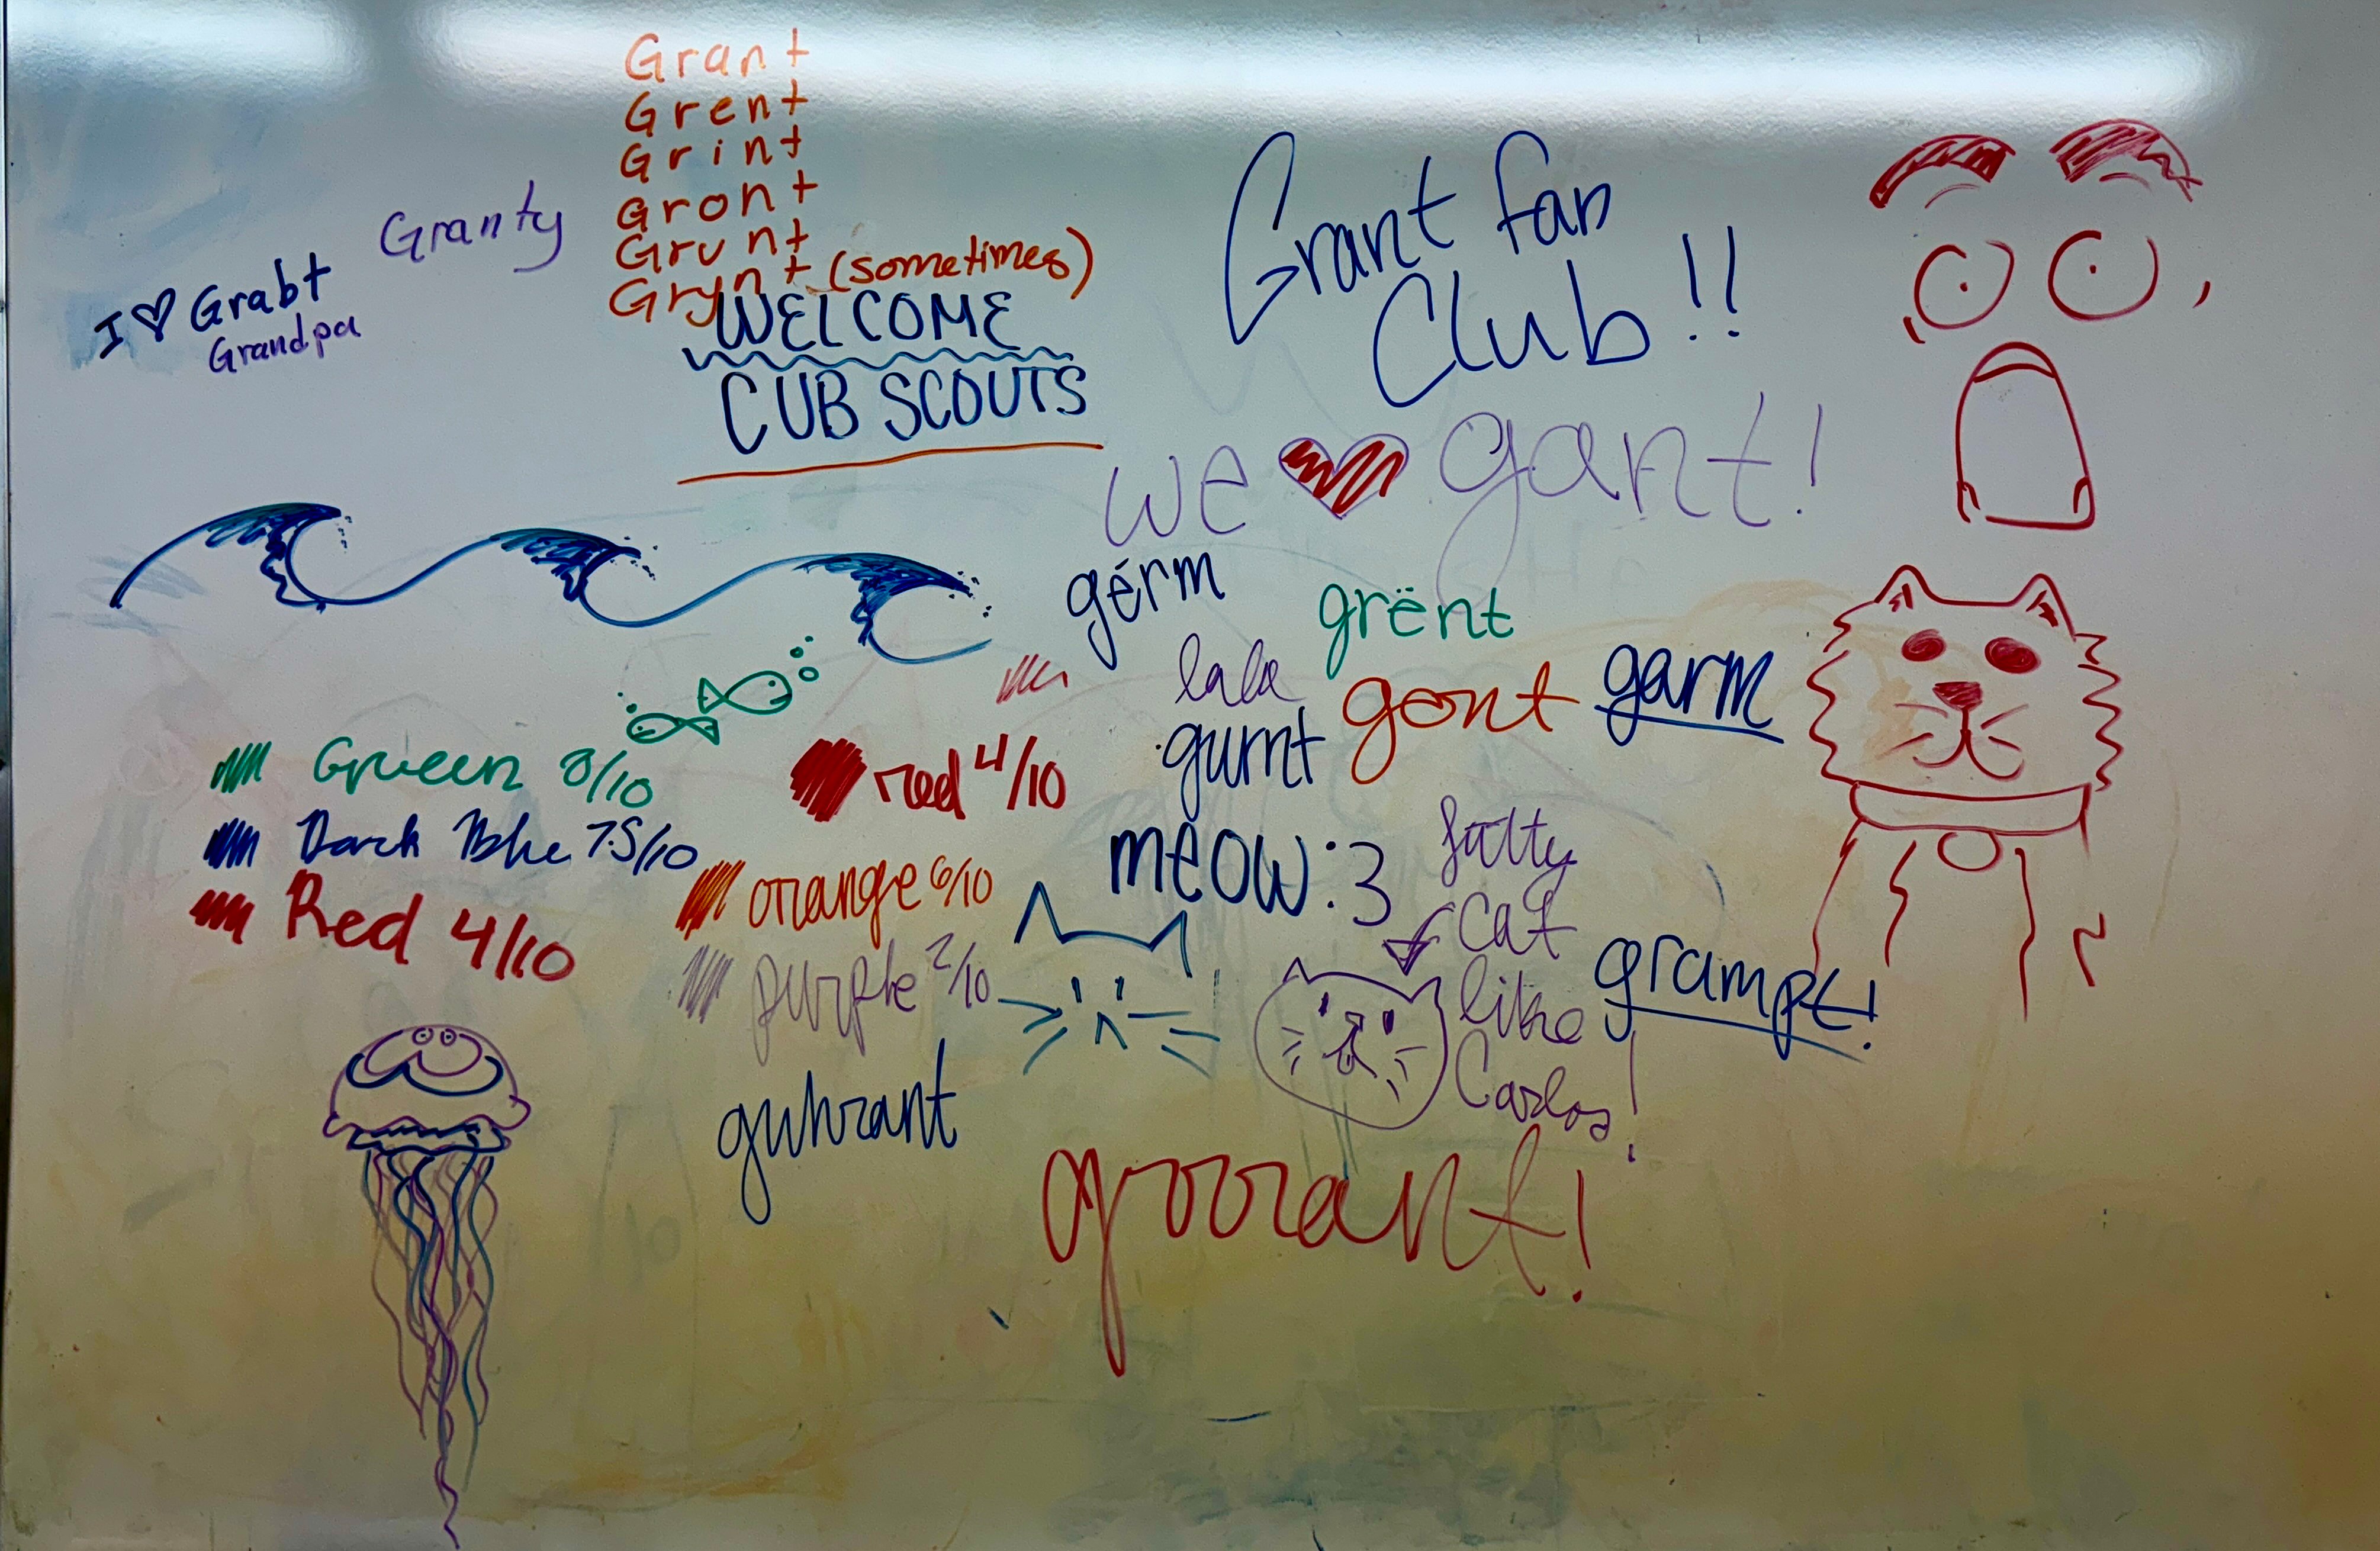 Grant
Grent
Grint
Gront
Grunt
Grynt (sometimes)
Granty
I ♡ Grabt
Grandpa
WELCOME
CUB SCOUTS
Grant fan
Club!!
we ♥ gant!
gérm
grënt
lala
gont
garm
gurnt
Green 8/10
red 4/10
Dark Blue 7.5/10
Red 4/10
orange 6/10
purple 2/10
meow :3
fatty
cat
like
Carlos!
grampt!
guhrant
grrrant!